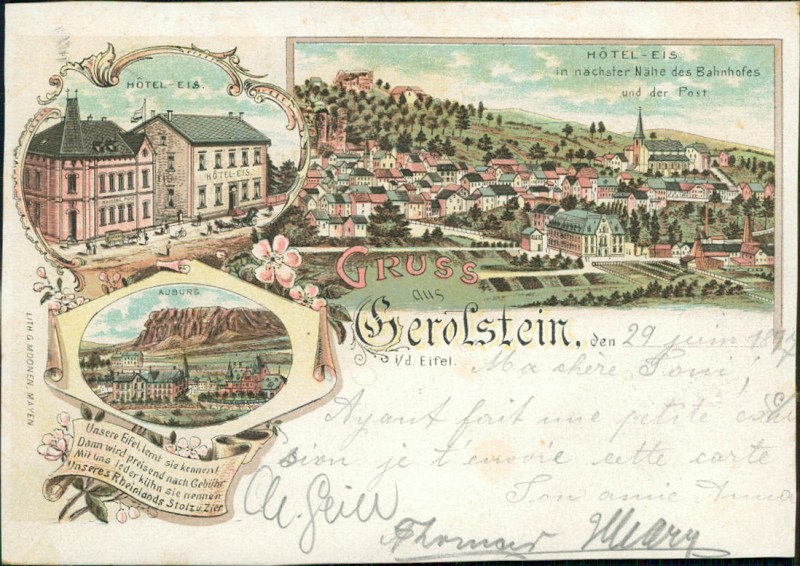 HÔTEL-EIS.
HÔTEL-EIS.
HÔTEL-EIS
in nächster Nähe des Bahnhofes
und der Post
AUBURG
GRUSS
aus
Gerolstein,
i/d. Eifel.
den 29 juin 1897
Ma chère Tom!
Ayant fait une petite
sion je t'envoie cette carte
Ton amie Anna
Thomas
Unsere Eifel, lernt sie kennen!
Dann wird preisend nach Gebühr
Mit uns jeder kühn sie nennen
Unseres Rheinlands Stolz u. Zier.
LITH G. MOONEN, MAYEN